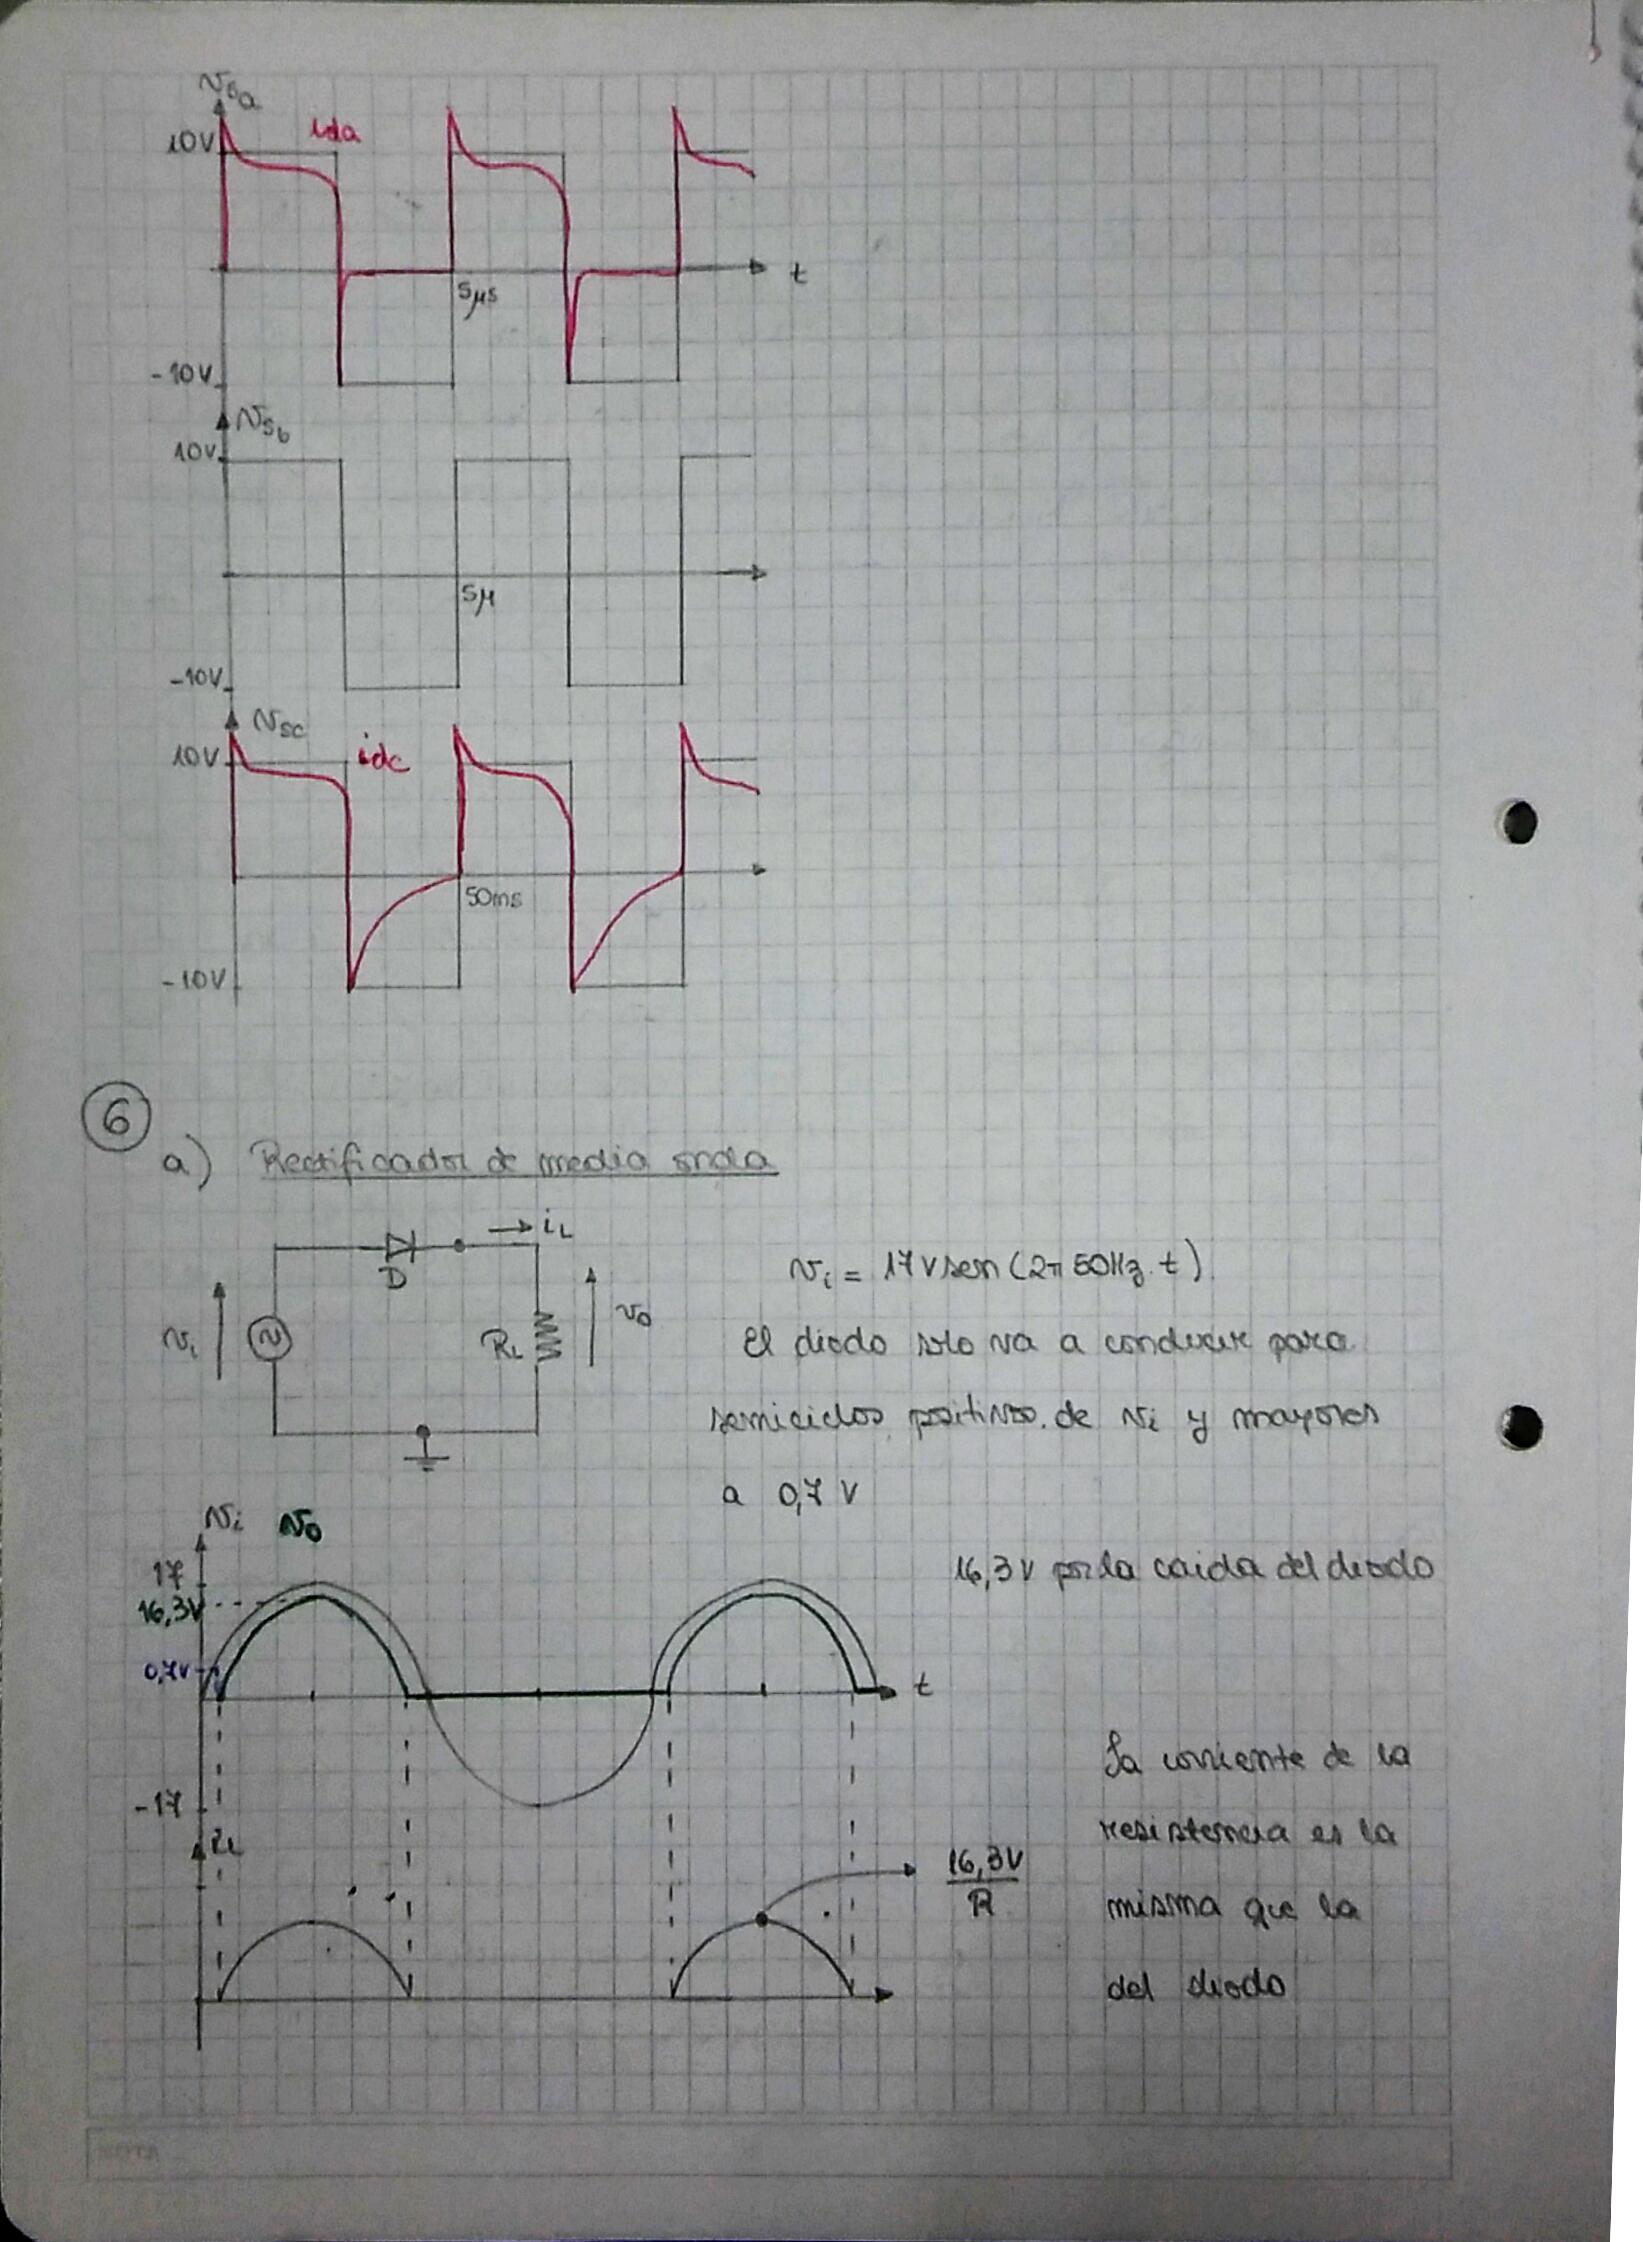 Vsa
10V
ida
t
5μs
-10V
Vsb
10V
5μ
-10V
Vsc
10V
idc
50ms
-10V
6
a) Rectificador de media onda
iL
D
vi
RL
vo
vi = 17V sen (2π 50Hz. t)
El diodo solo va a conducir para
semiciclos positivos de vi y mayores
a 0,7 V
vi vo
17
16,3V
0,7V
t
-17
16,3V por la caida del diodo
iL
16,3V
R
La corriente de la
resistencia es la
misma que la
del diodo
NOTA